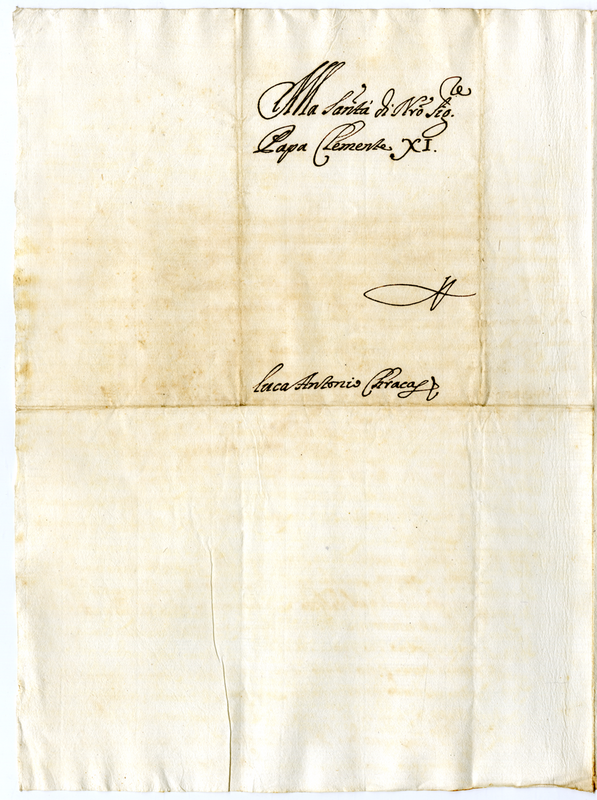 Alla Santà di Nro Sig.re
Papa Clemente XI.
Luca Antonio Ceracas